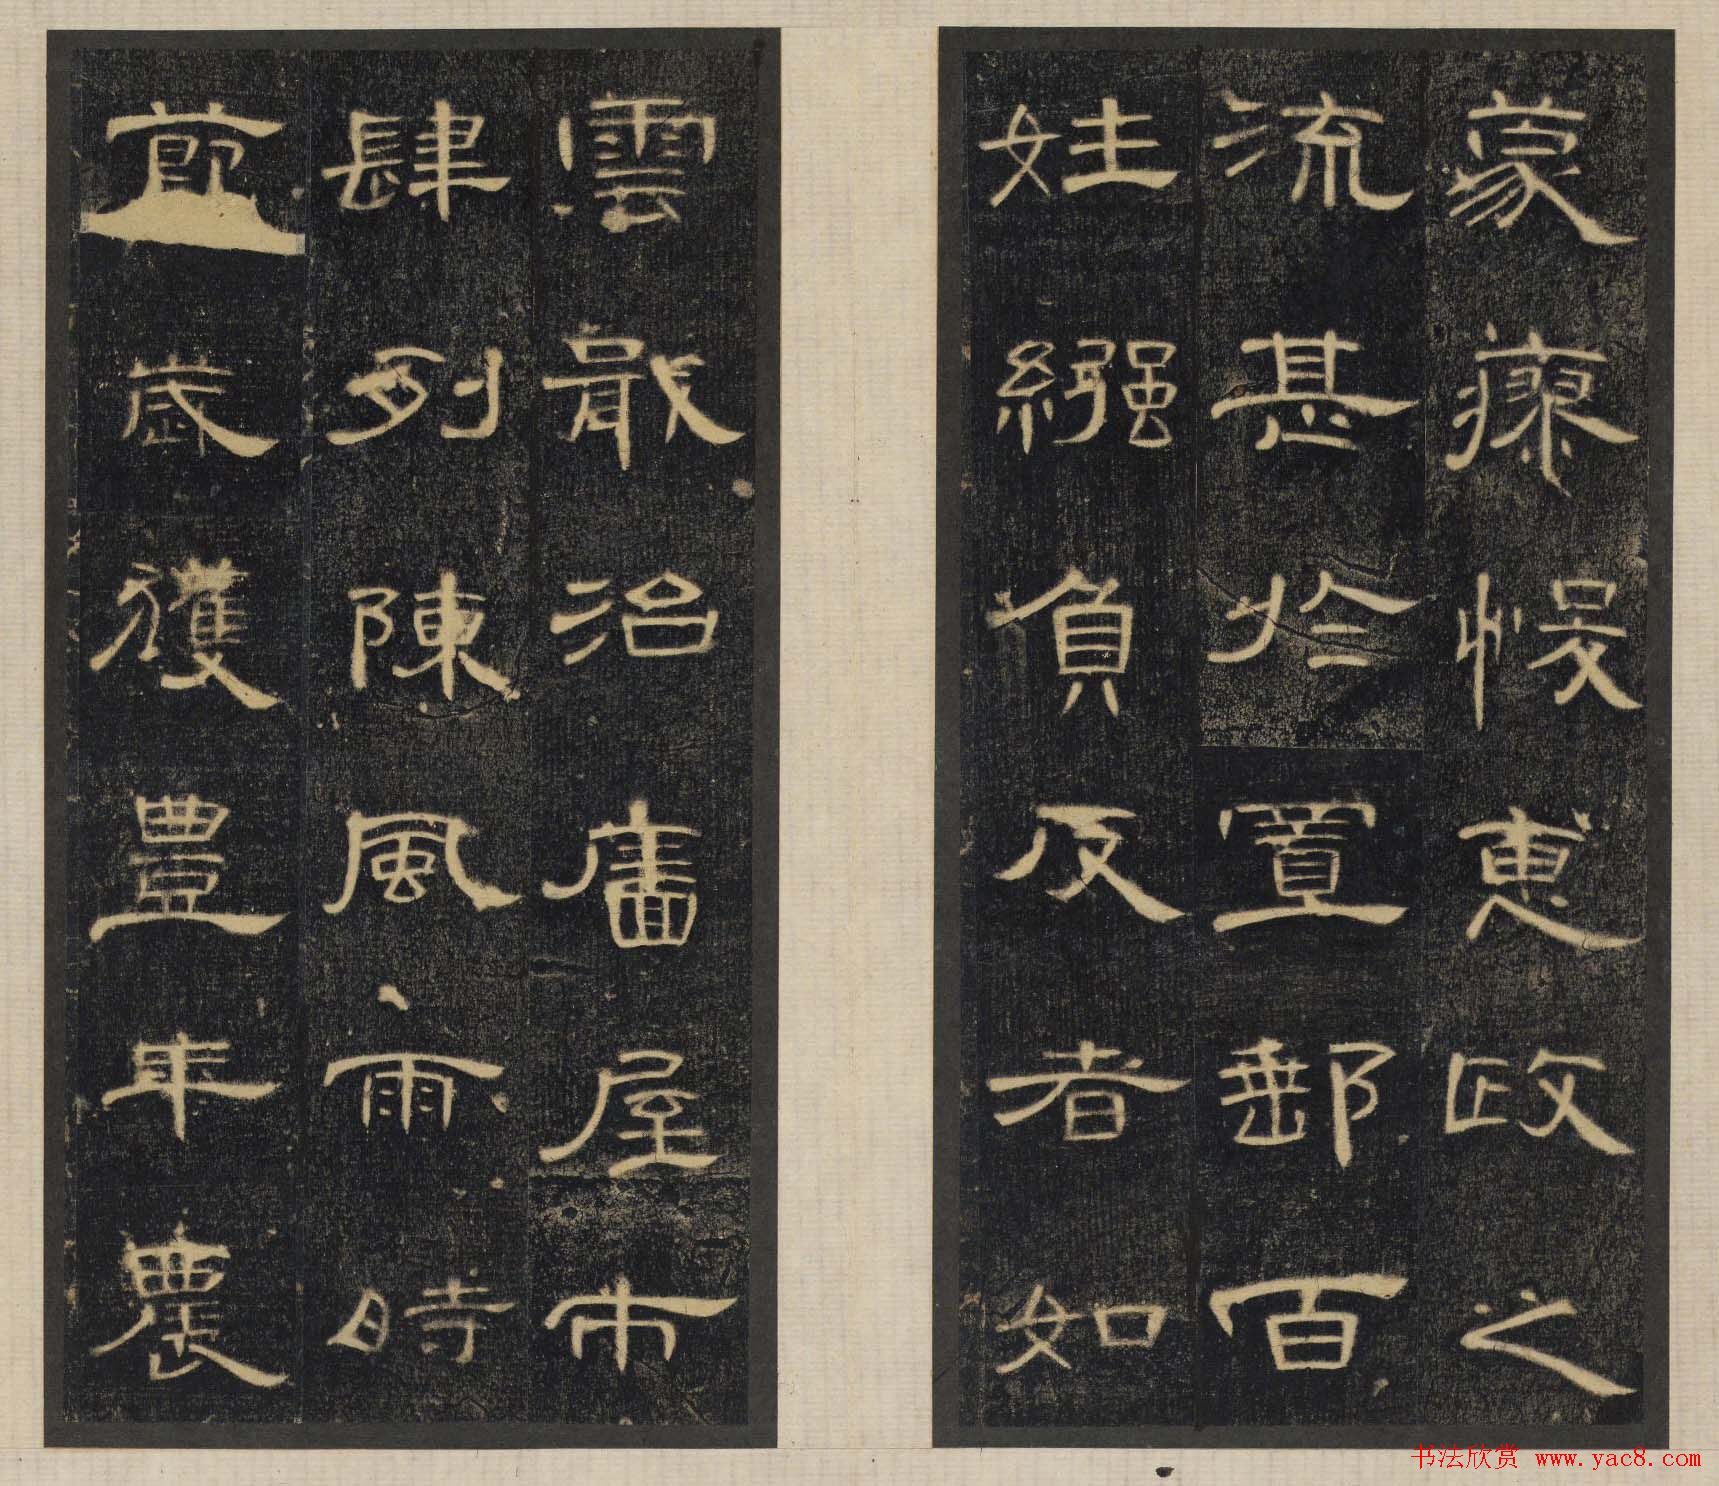 蒙瘳悞惠政之
流甚扵置郵百
姓繦負反者如
雲戢治廧屋市
肆列陳風雨時
節歲獲豊年農
书法欣赏 www.yac8.com